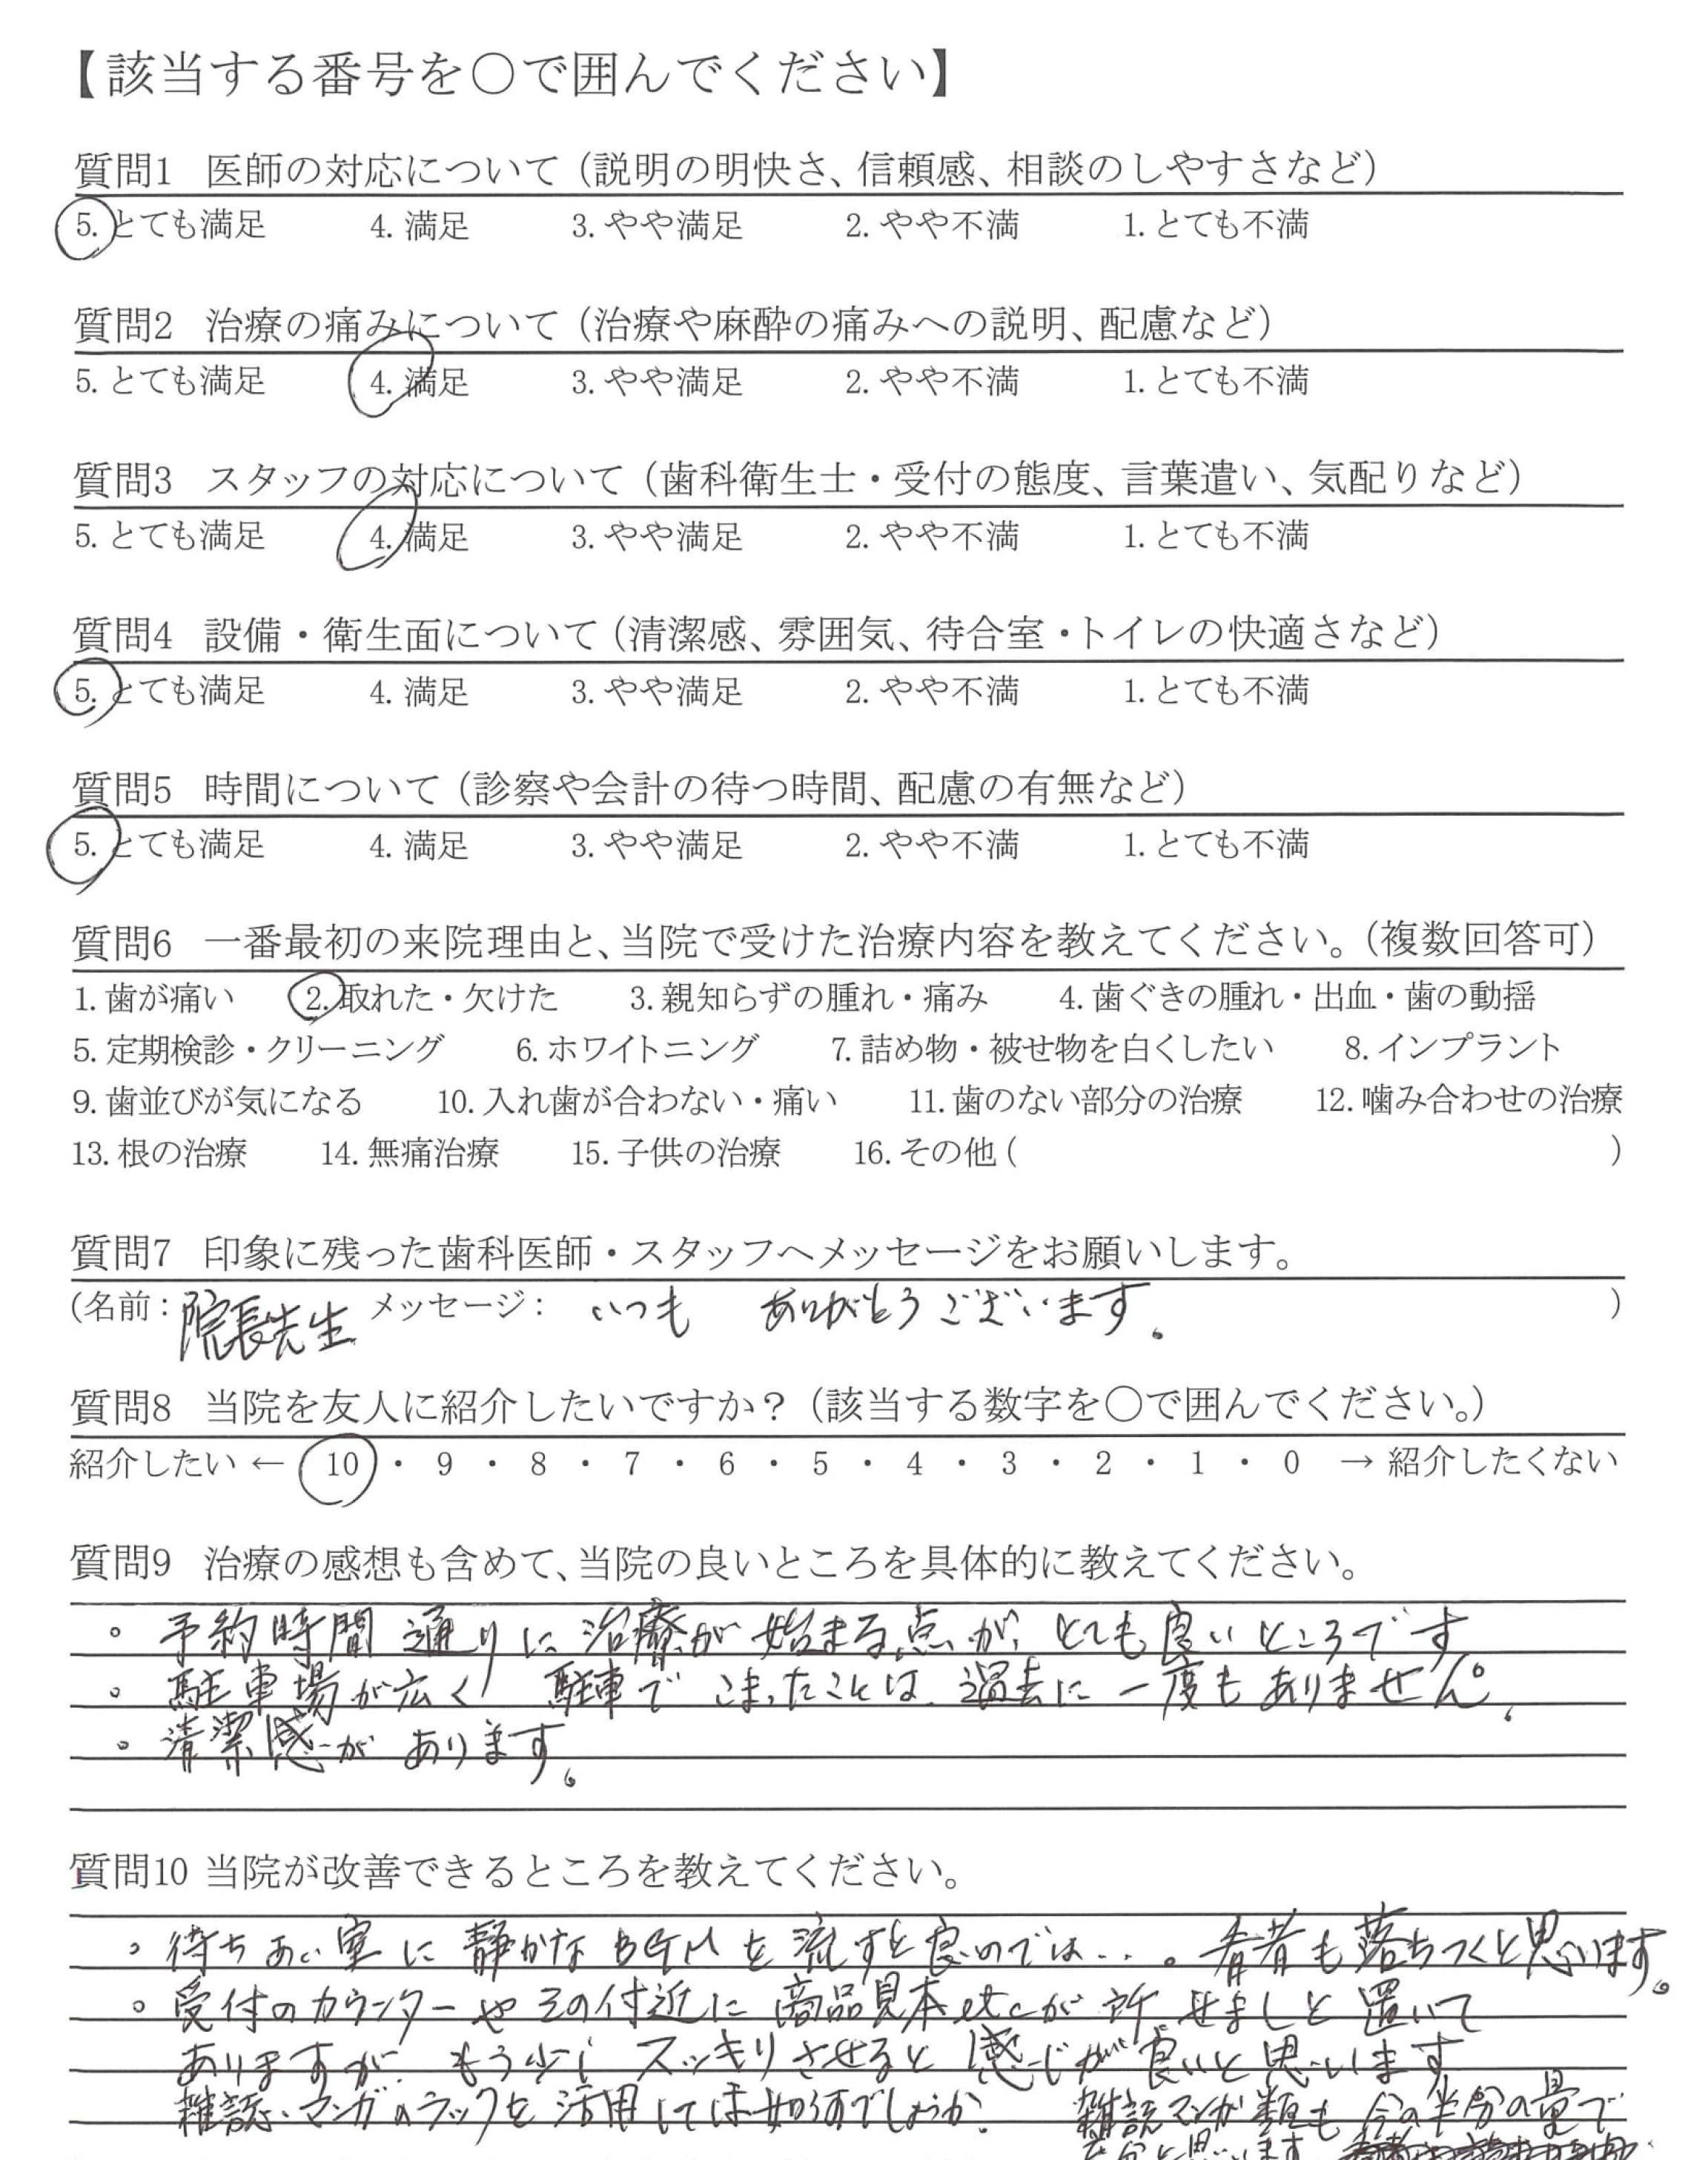 【該当する番号を〇で囲んでください】
質問1 医師の対応について（説明の明快さ、信頼感、相談のしやすさなど）
5. とても満足 4. 満足 3. やや満足 2. やや不満 1. とても不満
質問2 治療の痛みについて（治療や麻酔の痛みへの説明、配慮など）
5. とても満足 4. 満足 3. やや満足 2. やや不満 1. とても不満
質問3 スタッフの対応について（歯科衛生士・受付の態度、言葉遣い、気配りなど）
5. とても満足 4. 満足 3. やや満足 2. やや不満 1. とても不満
質問4 設備・衛生面について（清潔感、雰囲気、待合室・トイレの快適さなど）
5. とても満足 4. 満足 3. やや満足 2. やや不満 1. とても不満
質問5 時間について（診察や会計の待つ時間、配慮の有無など）
5. とても満足 4. 満足 3. やや満足 2. やや不満 1. とても不満
質問6 一番最初の来院理由と、当院で受けた治療内容を教えてください。（複数回答可）
1. 歯が痛い 2. 取れた・欠けた 3. 親知らずの腫れ・痛み 4. 歯ぐきの腫れ・出血・歯の動揺
5. 定期検診・クリーニング 6. ホワイトニング 7. 詰め物・被せ物を白くしたい 8. インプラント
9. 歯並びが気になる 10. 入れ歯が合わない・痛い 11. 歯のない部分の治療 12. 噛み合わせの治療
13. 根の治療 14. 無痛治療 15. 子供の治療 16. その他 ( )
質問7 印象に残った歯科医師・スタッフへメッセージをお願いします。
(名前: 院長先生 メッセージ: いつも ありがとうございます。 )
質問8 当院を友人に紹介したいですか？（該当する数字を〇で囲んでください。）
紹介したい ← 10 ・ 9 ・ 8 ・ 7 ・ 6 ・ 5 ・ 4 ・ 3 ・ 2 ・ 1 ・ 0 → 紹介したくない
質問9 治療の感想も含めて、当院の良いところを具体的に教えてください。
。予約時間通りに治療が始まる点が、とても良いところです
。駐車場が広く 駐車でこまったことは、過去に一度もありません。
。清潔感があります。
質問10 当院が改善できるところを教えてください。
。待ちあい室に静かなBGMを流すと良いのでは...。患者も落ちつくと思います。
。受付のカウンターやその付近に商品見本etcが所せましと置いて
ありますが、もう少しスッキリさせると感じが良いと思います
雑誌・マンガのラックを活用しては如何でしょうか。 雑誌マンガ類も今の半分の量で
と思います